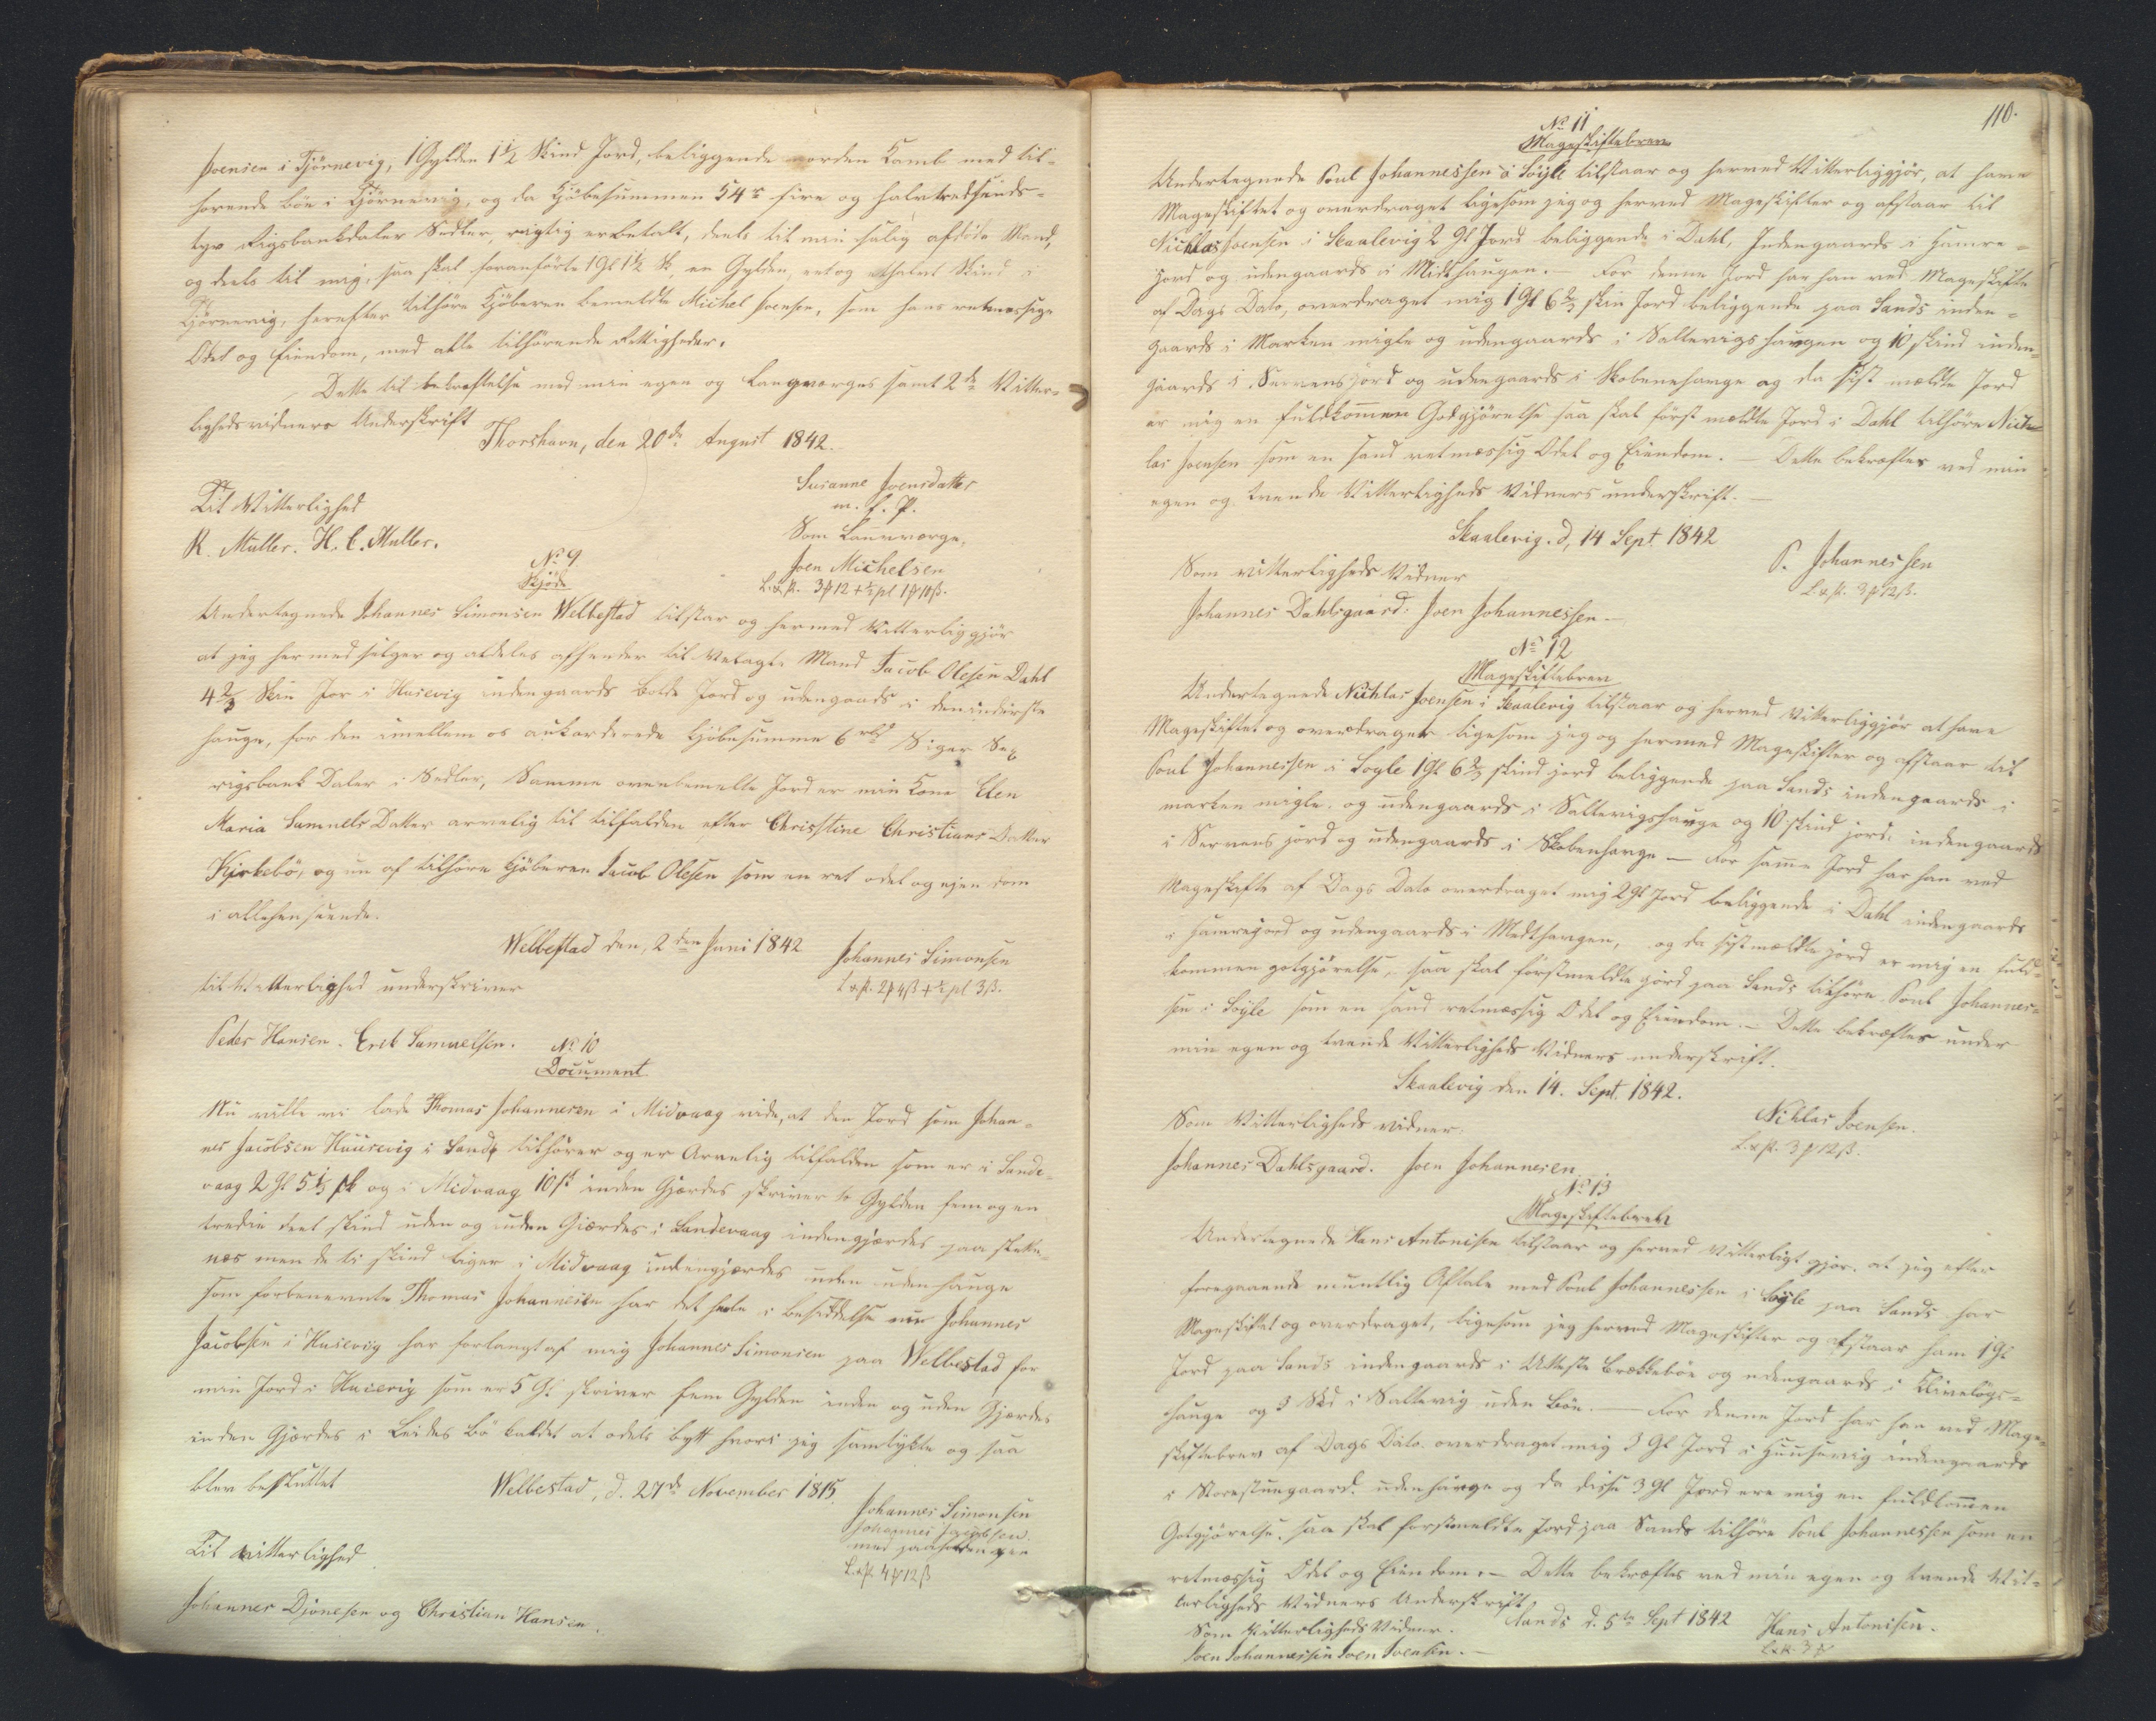 Joensen i Tjörnevig, 1 Gylden 1 1/2 Skind Jord, beliggende norden Kamb med til-
hørende bøe i Tjörnevig, og da Kjöbesummen 54 r fire og halvtredsinds-
tyve Rigsbankdaler Sedler, rigtig er betalt, deels til min salig afdöde Mand,
og deels til mig, saa skal foranförte 1 Gl 1 1/2 Sk, en Gylden, eet og et halvt Skind i
Tjörnevig, herefter tilhöre Kjöberen bemeldte Michel Joensen, som hans retmessige
Odel og Eiendom, med alle tilhörende Rettigheder.
Dette til bekræftelse med min egen og Laugværges samt 2de Vitter-
lighedsvidners Underskrift
Thorshavn, den 20de August 1842.
Susanne Joensdatter
m. f. P.
Til Vitterlighed
Som Laugværge,
R. Müller. H. C. Müller.
Joen Michelsen
No 9
Skjöde
Undertegnede Johannes Simonsen Welbestad tilstaar og hermed Vitterliggjör
at jeg hermed sælger og aldeles afhender til Velagte Mand Jacob Olesen Dahl
4 2/3 Skin Jor i Husevig indengaards bolde Jord og udengaards i den inderste
hauge, for den imellem os ankorderede Kjöbesumme 6 rbd Siger Sex
rigsbank Daler i Sedler, Samme ovenbemelte Jord er min Kone Elen
Maria Samuels Datter arvelig til tilfalden efter Christine Christians Datter
Kirkebö, og nu af tilhöre Kjöberen Jacob Olesen som en ret odel og ejendom
i allehenseende.
Welbestad den, 2den Juni 1842
Johannes Simonsen
til Vitterlighed underskriver
Peder Hansen. Erik Samuelsen.
No 10
Document
Nu ville vi lade Thomas Johannesen i Midvaag vide, at den Jord som Johan-
nes Jacobsen Huusevig i Sands tilhörer og er Arvelig tilfalden som er i Sande-
vaag 2 Gl 5 1/3 sk og i Midvaag 10 sk inden Gjærdes skriver to Gylden fem og en
tredie deel skind uden og inden Gjærdes i Sandevaag indengjærdes paa
næs men de ti skind liger i Midvaag indengjærdes uden udenhauge
som forbenevnte Thomas Johannesen har det hele i besiddelse nu Johannes
Jacobsen i Husevig har forlangt af mig Johannes Simonsen paa Welbestad for
min Jord i Husevig som er 5 Gl. skriver fem Gylden inden og uden Gjærdes
inden Gjærdes i Leides bö kaldet at odels bytt hvori jeg samtykte og saa
blev besluttet
Welbestad, d. 27de November 1815.
Johannes Simonsen
Johannes Jacobsen
med paaholden pen
Til vitterlighed
Johannes Djonesen og Christian Hansen.
110.
No 11
Mageskiftebrev
Undertegnede Poul Johannessen i Söyle tilstaar og herved Vitterliggjör, at have
Mageskiftet og overdraget ligesom jeg og herved Mageskifter og afstaar til
Nichlas Joensen i Skaalevig 2 Gl Jord beliggende i Dahl, Indengaards i Hamre-
jord og udengaards i Midthaugen. — For denne Jord har han ved Mageskifte
af Dags Dato, overdraget mig 1 Gl 6 2/3 skin Jord beliggende paa Sands inden-
gaards i Marken migle og udengaards i Saltevigs haugen og 10 skind inden-
gaards i Servens jord og udengaards i Skobenehauge og da sist mældte Jord
er mig en fuldkommen Godgjörelse saa skal först mældte Jord i Dahl tilhöre Nich-
las Joensen som en sand retmæssig Odel og Eiendom. — Dette bekræftes ved min
egen og tvende Vitterligheds Vidners underskrift. —
Skaalevig. d, 14 Sept. 1842
P. Johannessen
Som vitterligheds Vidner
Johannes Dahlsgaard. Joen Johannessen —
No 12
Mageskiftebrev
Undertegnede Nichlas Joensen i Skaalevig tilstaar og herved Vitterliggjör at have
Mageskiftet og overdraget ligesom jeg og hermed Mageskifter og afstaar til
Poul Johannessen i Soyle 1 Gl 6 2/3 skind jord beliggende paa Sands indengaards i
marken migle. og udengaards i Saltevigshauge og 10 skind jord. indengaards
i Servens jord og udengaards i Skobenhauge — For samme Jord har han ved
Mageskifte af Dags Dato overdraget mig 2 Gl Jord beliggende i Dahl indengaards
i Hamrejord og udengaards i Medthaugen, og da sistmældte jord er mig en fuld-
kommen gotgjörelse, saa skal förstmeldte jord paa Sands tilhöre Poul Johannes-
sen i Söyle som en sand retmæssig Odel og Eiendom. — Dette bekræftes under
min egen og tvende Vitterligheds Vidners underskrift.
Skaalevig den 14. Sept. 1842.
Nichlas Joensen.
Som Vitterligheds vidner.
Johannes Dahlsgaard. Joen Johannesen
No 13
Mageskiftebrev
Undertegnede Hans Antonisen tilstaar og herved Vitterligt gjör. at jeg efter
foregaaende mundtlig Aftale med Poul Johannessen i Söyle paa Sands har
Mageskiftet og overdraget, ligesom jeg herved Mageskifter og afstaar ham 1 Gl
Jord paa Sands indengaards i Utteste brekkebøe og udengaards i
hauge og 3 Skd i Saltevig uden böe. — For denne Jord har han ved Mage-
skiftebrev af Dags Dato. overdraget mig 3 Gl Jord i Huusevig indengaards
i Storestuegaard. udenhauge og da disse 3 Gl Jord ere mig en fuldkommen
Gotgjörelse. saa skal forstmeldte Jord paa Sands tilhöre Poul Johannessen som en
retmæssig Odel og Eiendom. — Dette bekræftes ved min egen og tvende Vit-
terligheds Vidners Underskrift
Sands d. 5te Sept 1842
Hans Antonisen.
Som Vitterligheds Vidner.
Joen Johannessen Joen Joensen. —